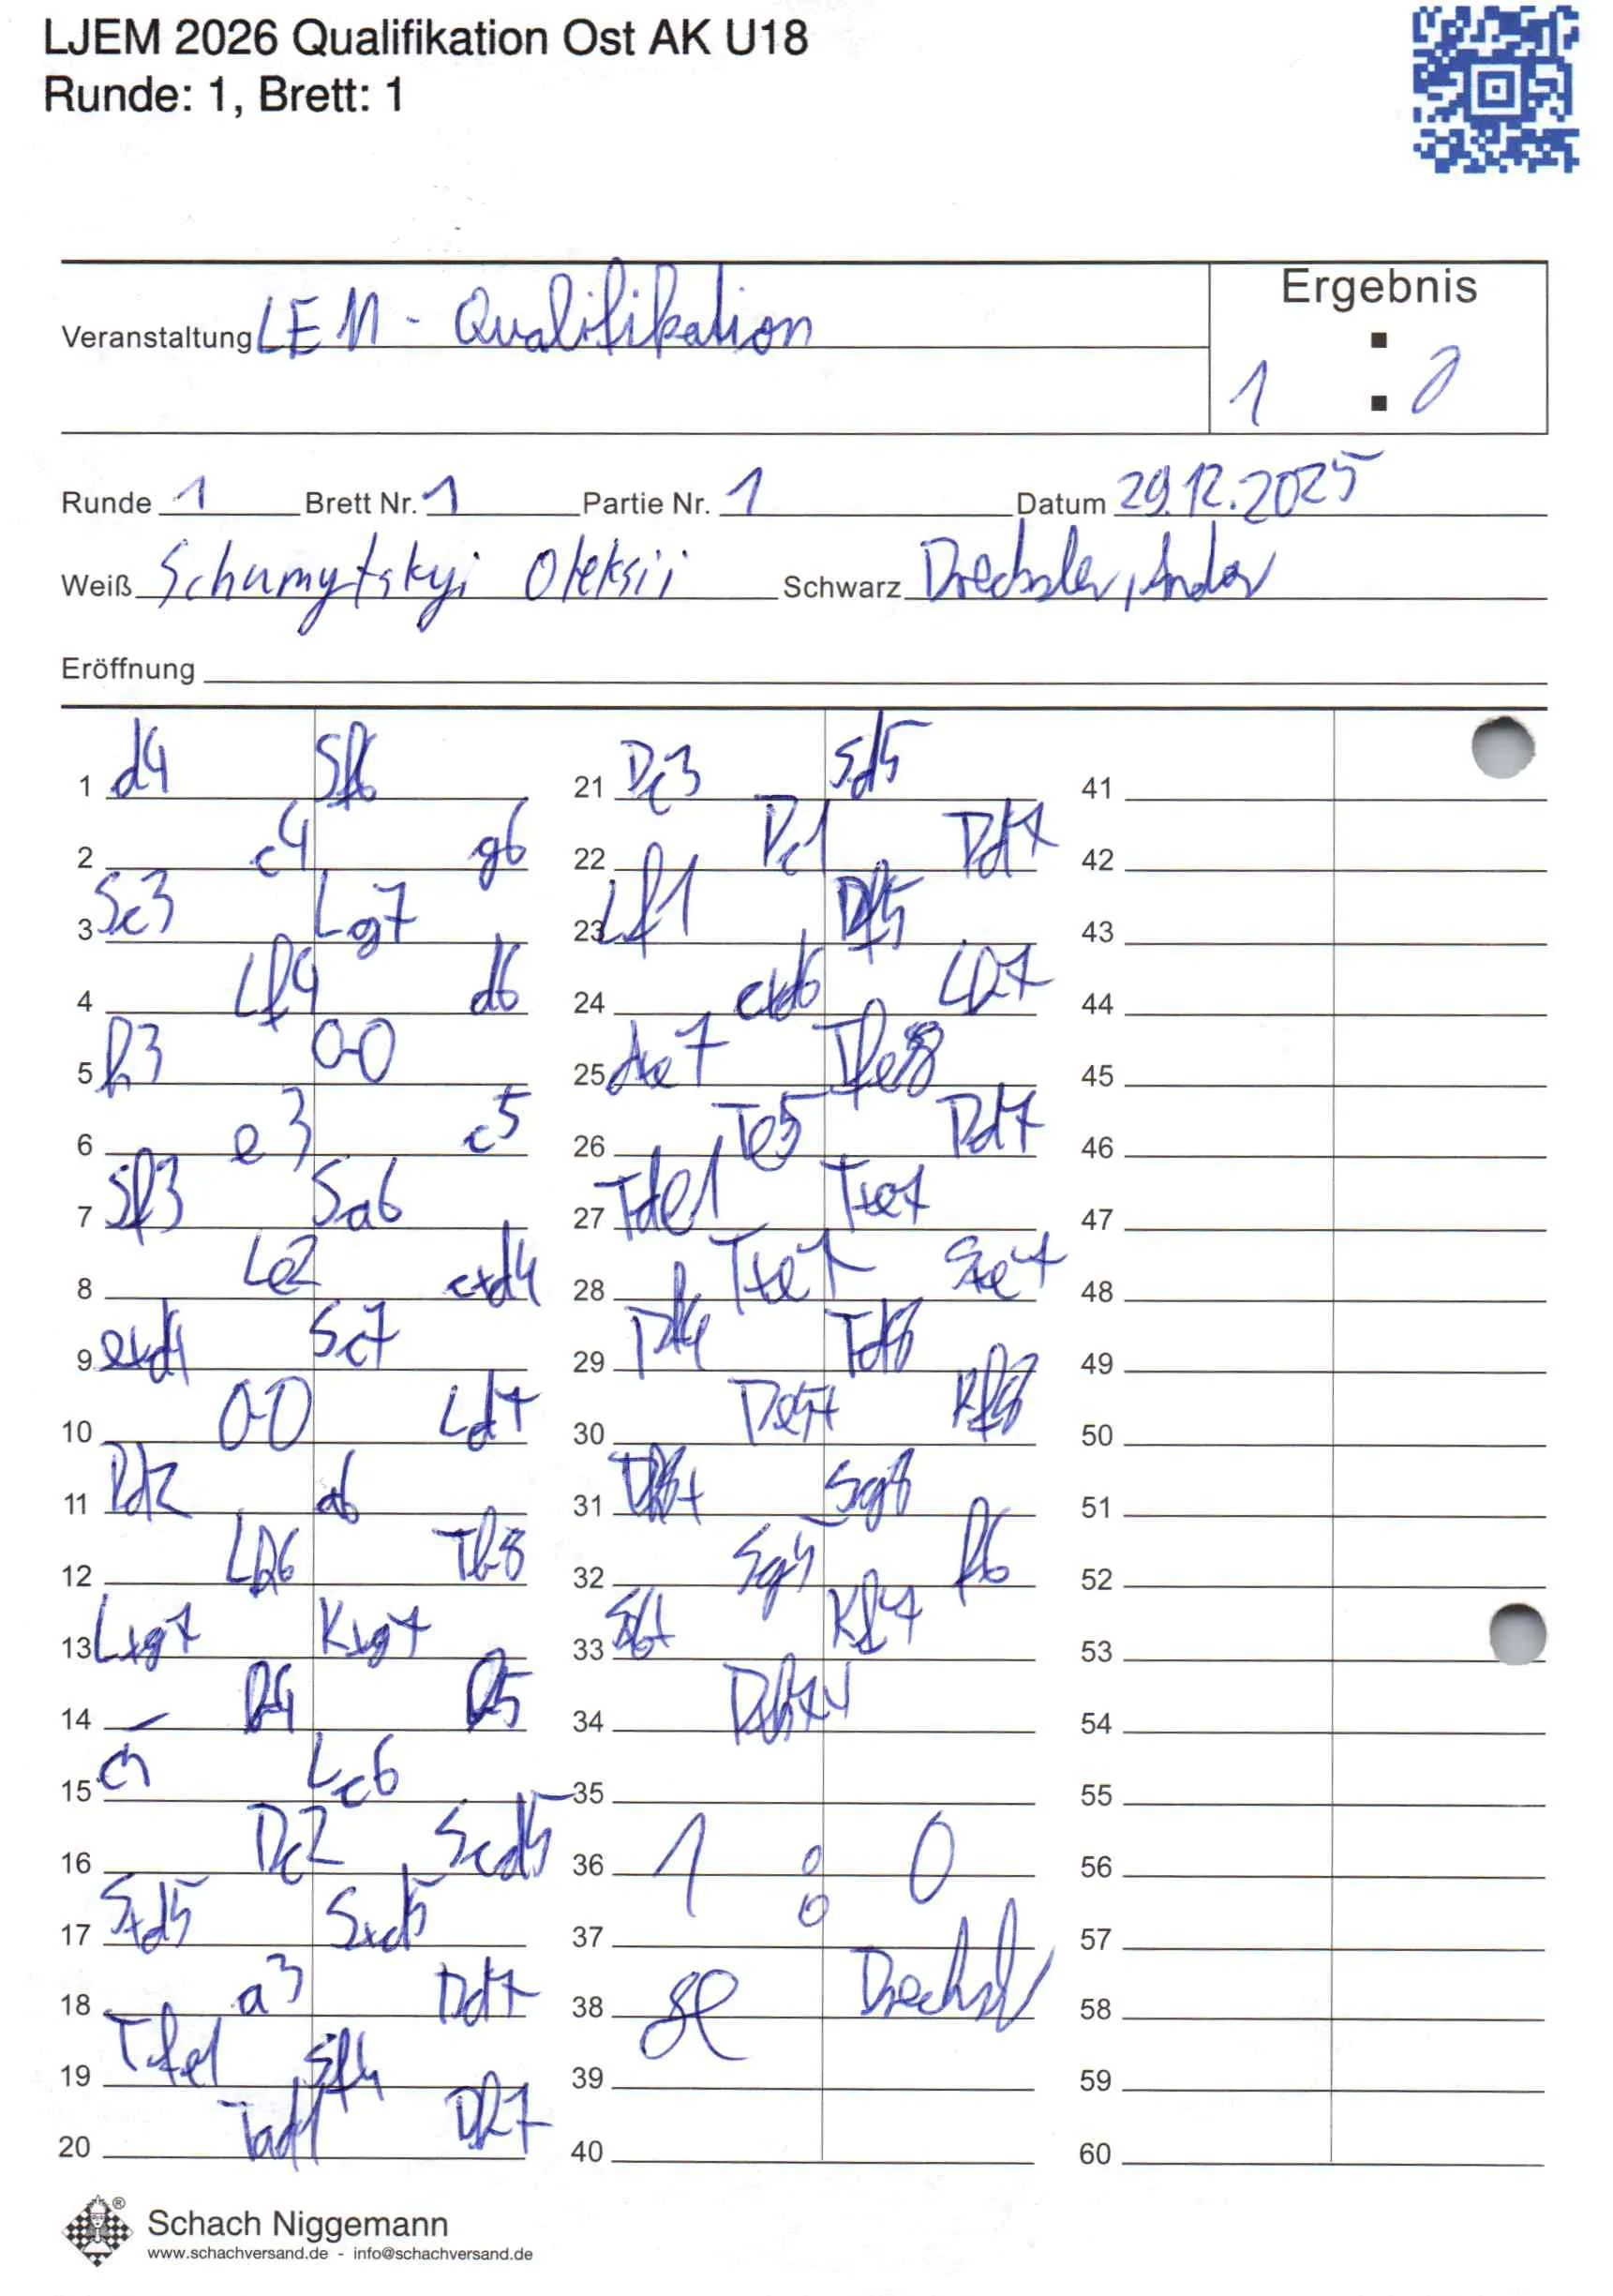 LJEM 2026 Qualifikation Ost AK U18
Runde: 1, Brett: 1
Ergebnis
Veranstaltung LEM - Qualifikation
1 : 0
Runde 1 Brett Nr. 1 Partie Nr. 1 Datum 29.12.2025
Weiß Schumytskyi Oleksii Schwarz Drechsler, Andor
Eröffnung
1 d4 Sf6
2 c4 g6
3 Sc3 Lg7
4 Lf4 d6
5 h3 0-0
6 e3 c5
7 Sf3 Sa6
8 Le2 cxd4
9 exd4 Sc7
10 0-0 Ld7
11 Dd2 a6
12 Lh6 Tb8
13 Lxg7 Kxg7
14 b4 b5
15 c5 Lc6
16 Dc2 Scd5
17 Sxd5 Sxd5
18 a3 Dd7
19 Tfe1 Sf4
20 Tad1 Db7
21 Dc3 Sd5
22 Dc1 Dd7
23 Lf1 Df5
24 cxd6 Lb7
25 dxe7 Tfe8
26 Te5 Dd7
27 Tde1 Txe7
28 Txe7 Sxe7
29 Df4 Td8
30 De5+ Kf8
31 Dh8+ Sg8
32 Sg5 f6
33 Sh7+ Kf7
34
35
36 1 : 0
37
38 Drechsl
39
40
41
42
43
44
45
46
47
48
49
50
51
52
53
54
55
56
57
58
59
60
Schach Niggemann
www.schachversand.de - info@schachversand.de